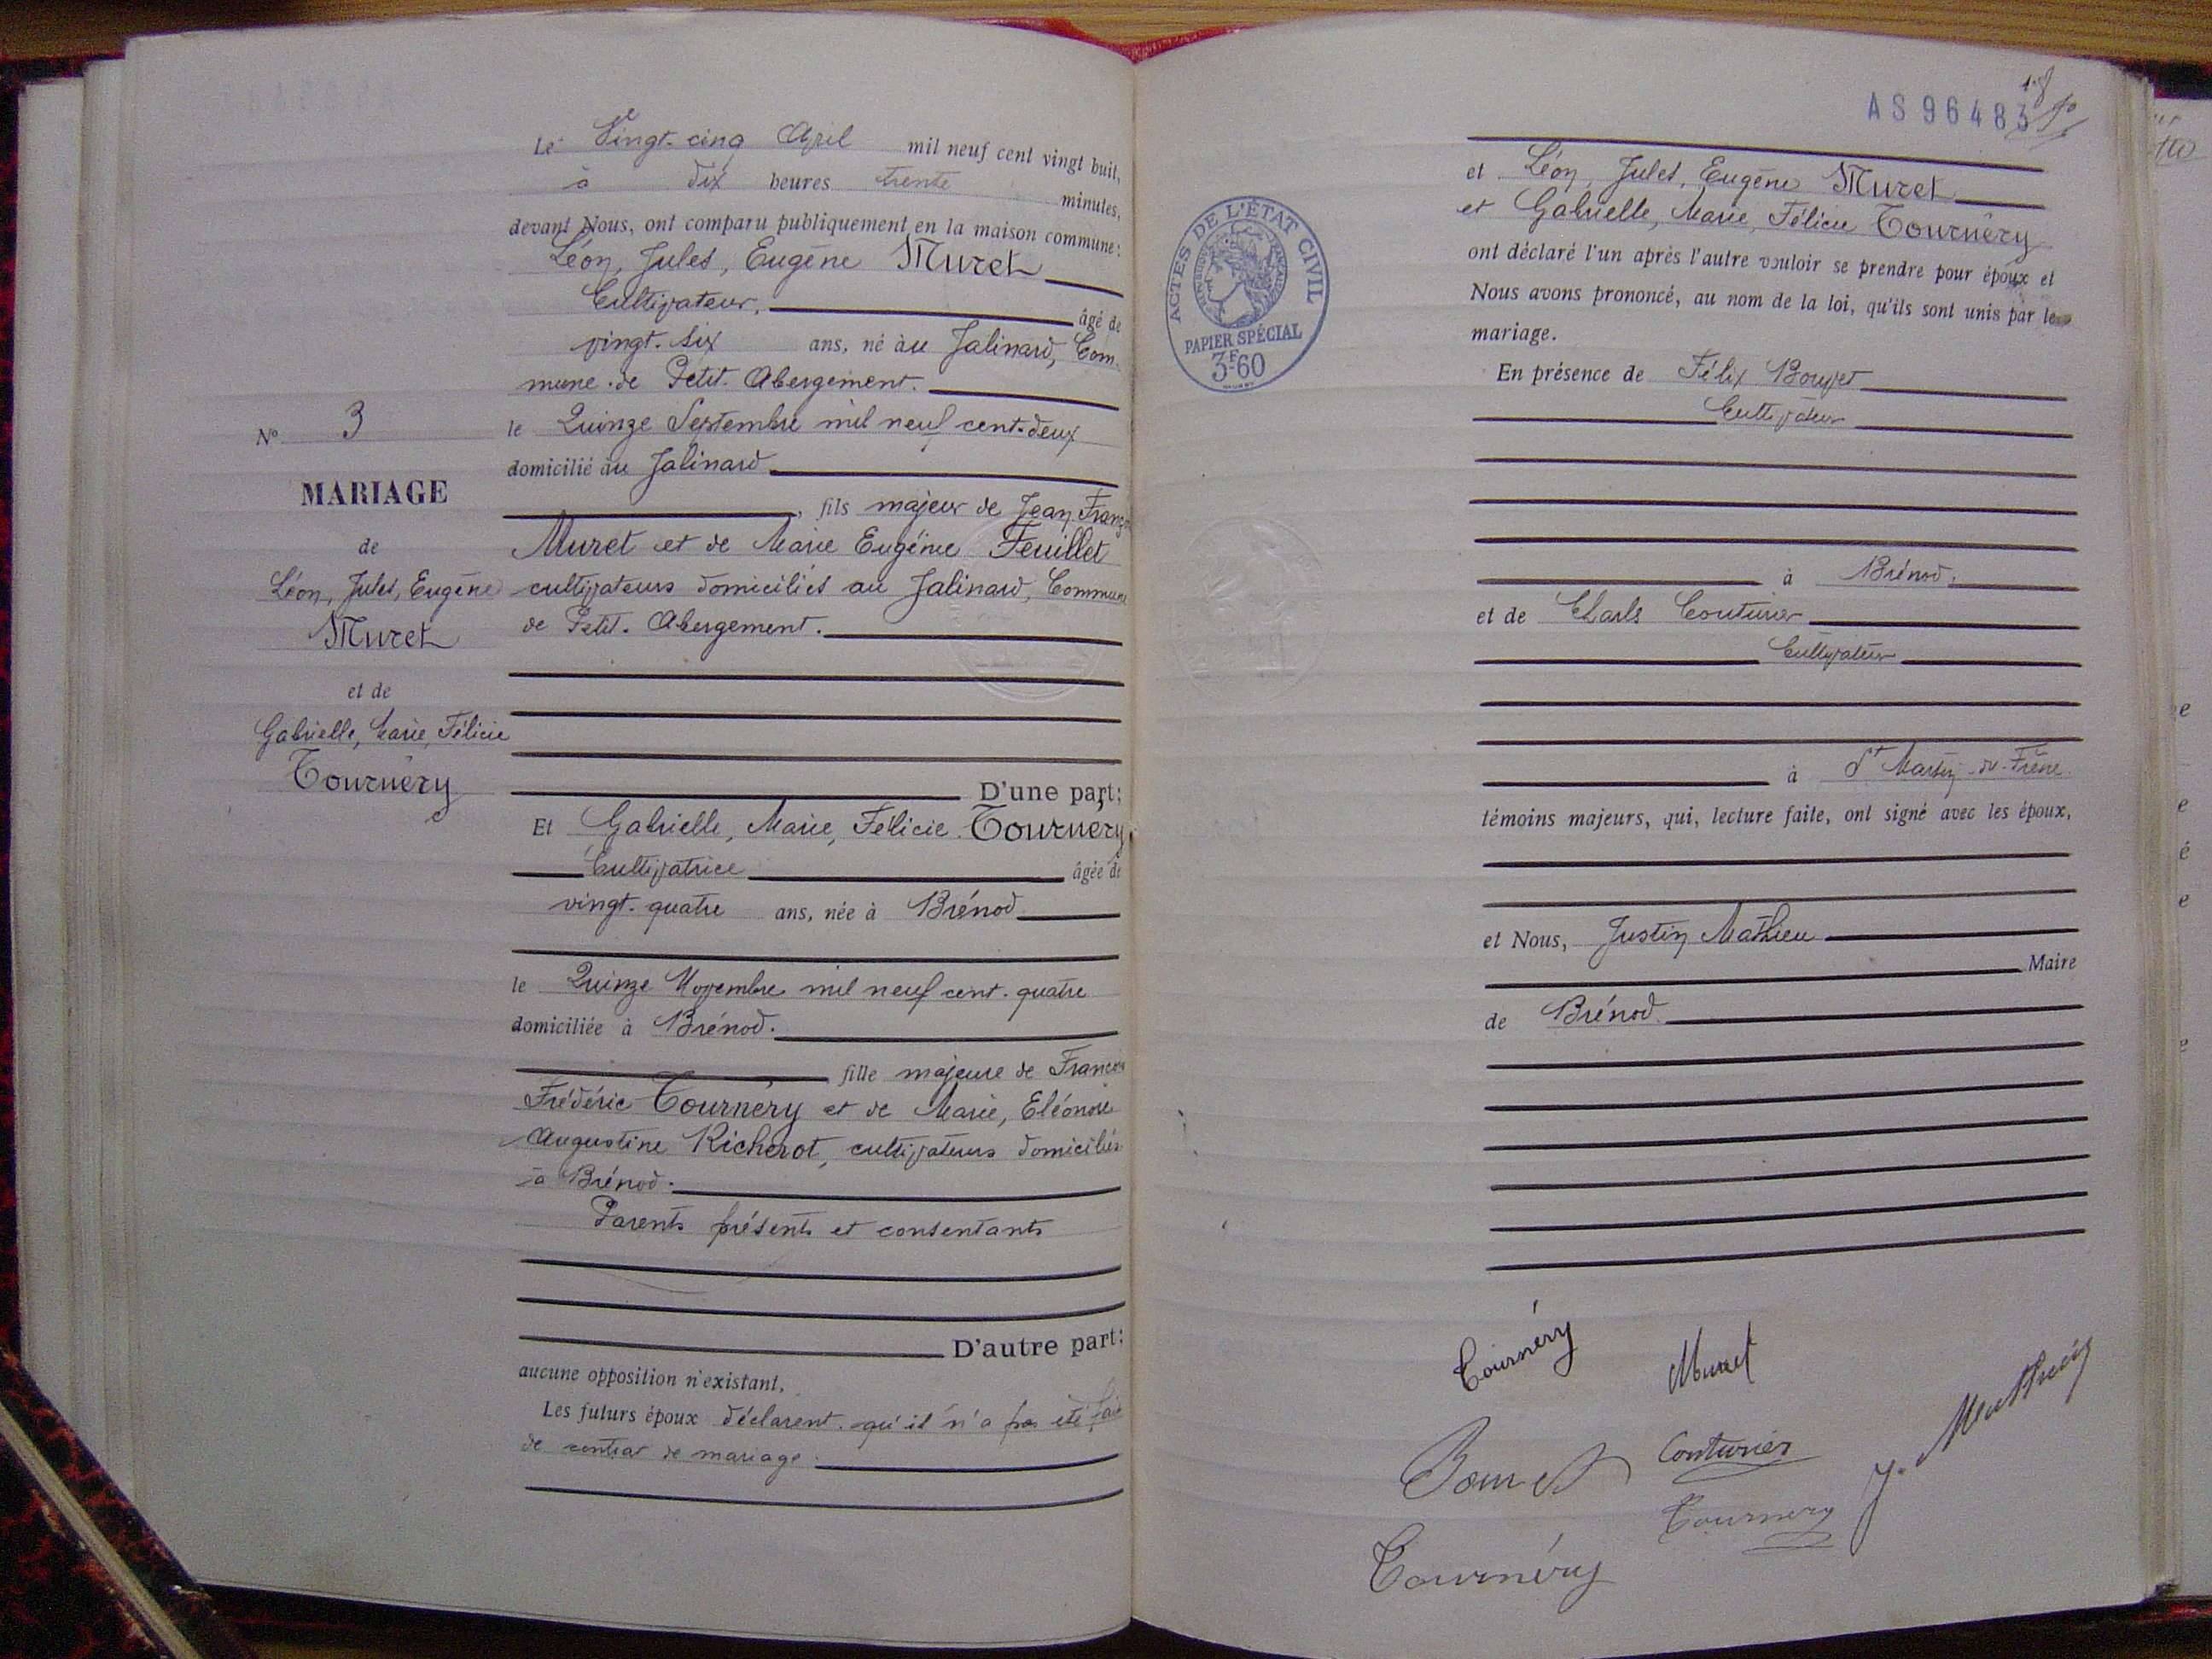 Le Vingt-cinq Avril mil neuf cent vingt huit,
à dix heures trente minutes,
devant Nous, ont comparu publiquement en la maison commune:
Léon, Jules, Eugène Muret
Cultivateur, âgé de
vingt-six ans, né au Jalinard, Com-
mune de Petit-Abergement.
le Quinze Septembre mil neuf cent-deux
domicilié au Jalinard
, fils majeur de Jean François
Muret et de Marie Eugénie Feuillet
cultivateurs domiciliés au Jalinard, Commune
de Petit-Abergement.
D'une part:
Et Gabrielle, Marie, Félicie Tournéry,
Cultivatrice âgée de
vingt-quatre ans, née à Brénod
le Quinze Novembre mil neuf cent-quatre
domiciliée à Brénod.
, fille majeure de François
Frédéric Tournéry et de Marie, Eléonore
Augustine Richerot, cultivateurs domiciliés
à Brénod.
Parents présents et consentants
D'autre part:
aucune opposition n'existant,
Les futurs époux déclarent qu'il n'a pas été fait
de contrat de mariage.
No 3
MARIAGE
de
Léon, Jules, Eugène
Muret
et de
Gabrielle, Marie, Félicie
Tournéry
AS 96483
et Léon, Jules, Eugène Muret
et Gabrielle, Marie, Félicie Tournéry
ont déclaré l'un après l'autre vouloir se prendre pour époux et
Nous avons prononcé, au nom de la loi, qu'ils sont unis par le
mariage.
En présence de Félix Bouvet
Cultivateur
à Brénod.
et de Charles Couturier
Cultivateur
à St Martin-du-Frêne
témoins majeurs, qui, lecture faite, ont signé avec les époux,
et Nous, Justin Mathieu
Maire
de Brénod.
ACTES DE L'ÉTAT CIVIL
RÉPUBLIQUE FRANÇAISE
PAPIER SPÉCIAL
3F60
Tournéry
Muret
J. Mathieu
Bouvet
Couturier
Tournery
Tournéry